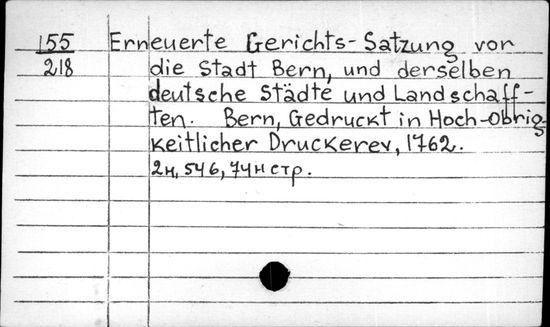 155 Erneuerte Gerichts-Satzung vor
218 die Stadt Bern, und derselben
deutsche Städte und Landschaff-
ten. Bern, Gedruckt in Hoch-Obrig-
keitlicher Druckerey, 1762.
2н, 546, 74н стр.